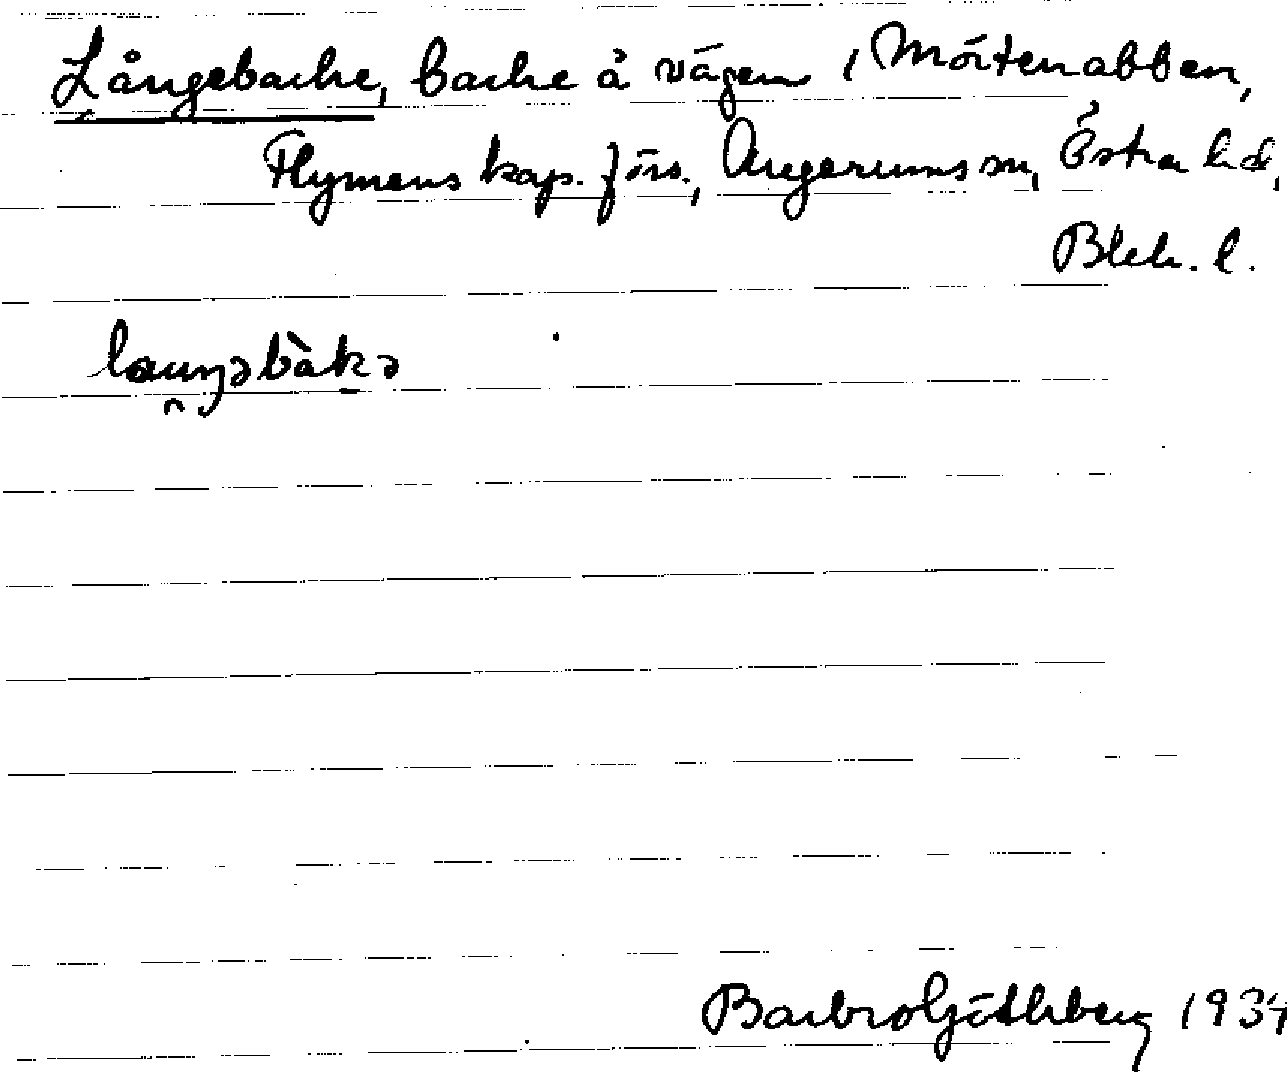 Långebacke, backe å vägen i Mörtenabben,
Flymens kap. förs., Augerums sn, Östra hd,
Blek. l.
lauŋəbàkə
Barbro Götherberg 1934